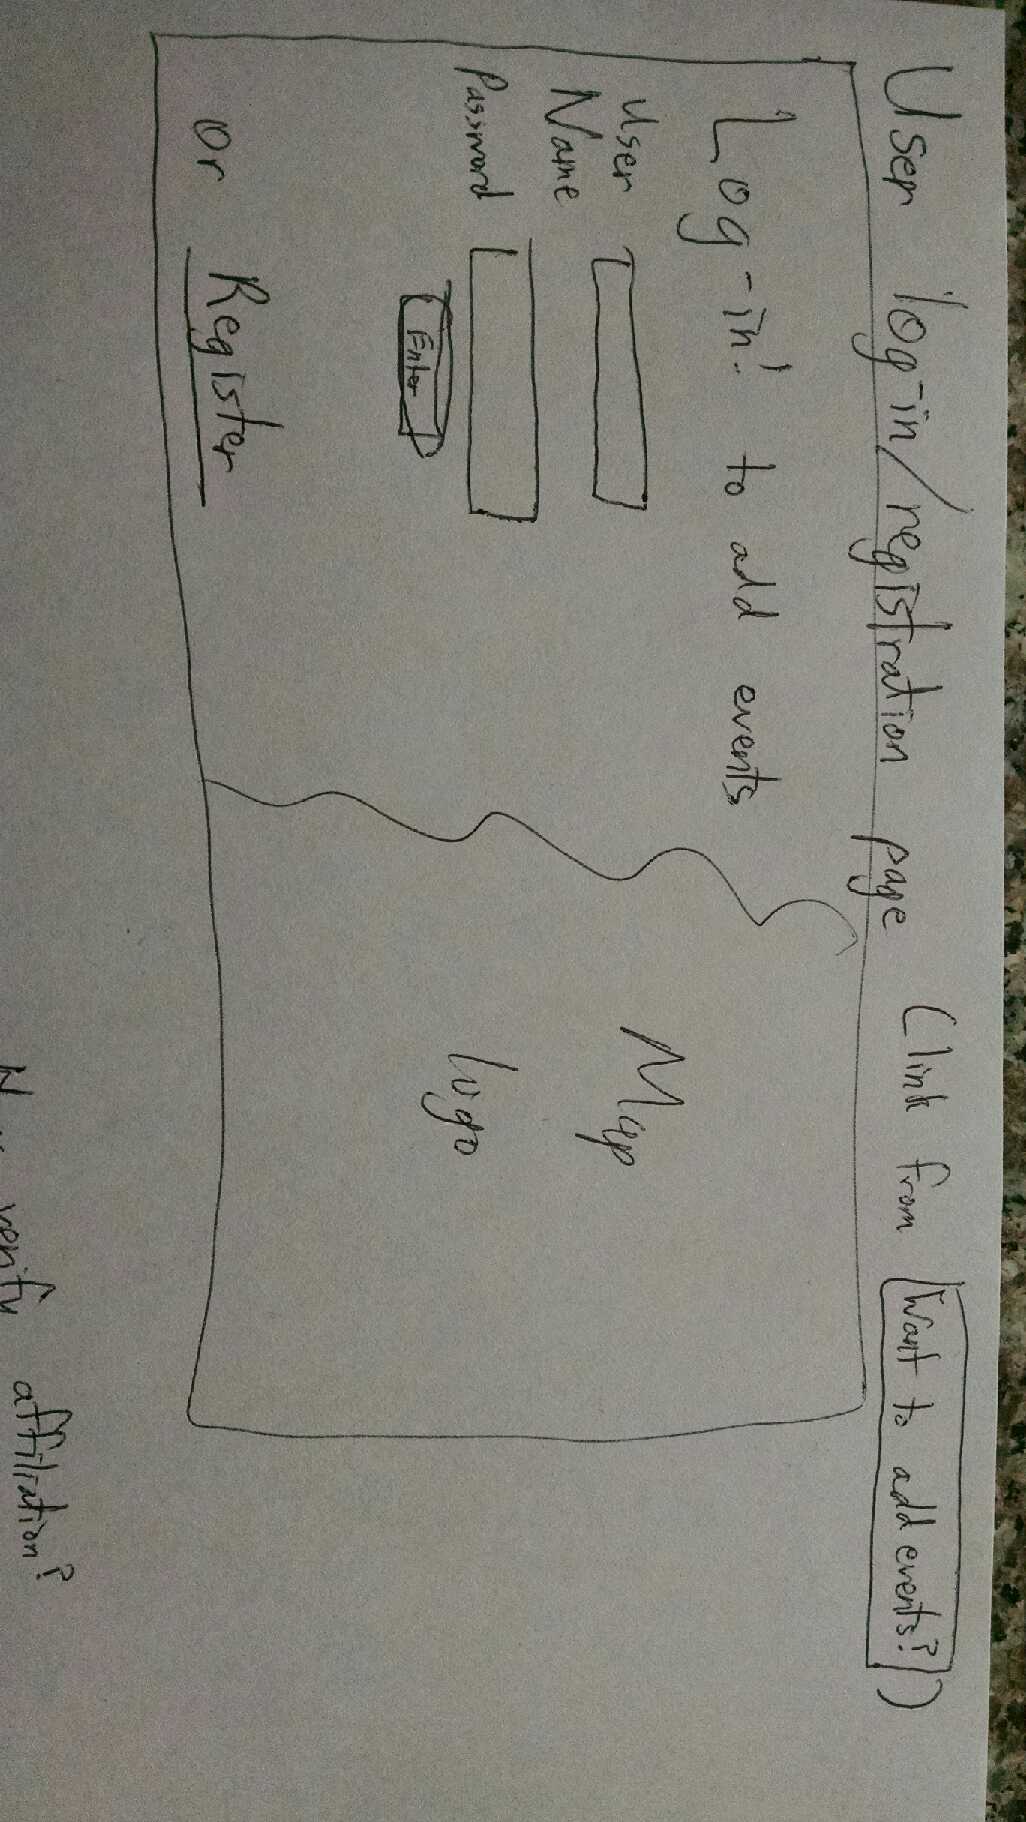 User log-in/registration page (link from Want to add events?)
Log-in! to add events
User
Name
Password
Enter
or Register
Map
logo
verify affiliation?